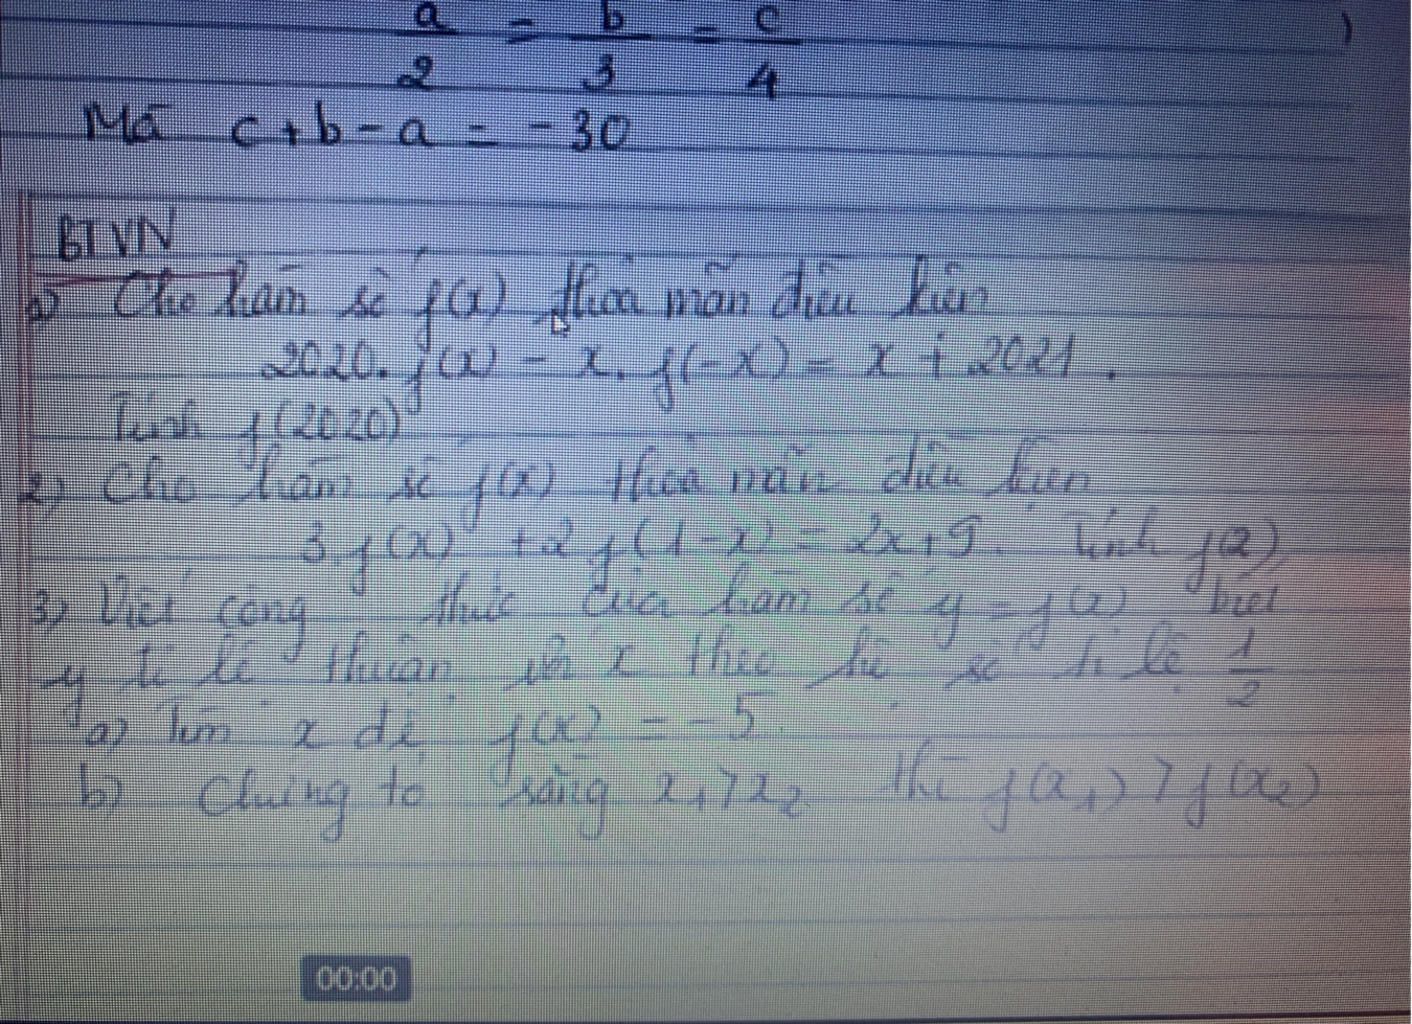 a/2 = b/3 = c/4 )
Mà c + b - a = - 30
BTVN
Cho hàm số f(x) thỏa mãn điều kiện
2020. f(x) - x. f(-x) = x + 2021.
Tính f(2020)
2) Cho hàm số f(x) thỏa mãn điều kiện
3 f(x) + 2 f(1-x) = 2x+9. Tính f(2)
3) Viết công thức của hàm số y = f(x) biết
y tỉ lệ thuận x theo hệ số tỉ lệ 1/2
a) Tìm x để f(x) = - 5.
b) Chứng tỏ rằng x₁ > x₂ thì f(x₁) > f(x₂)
00:00